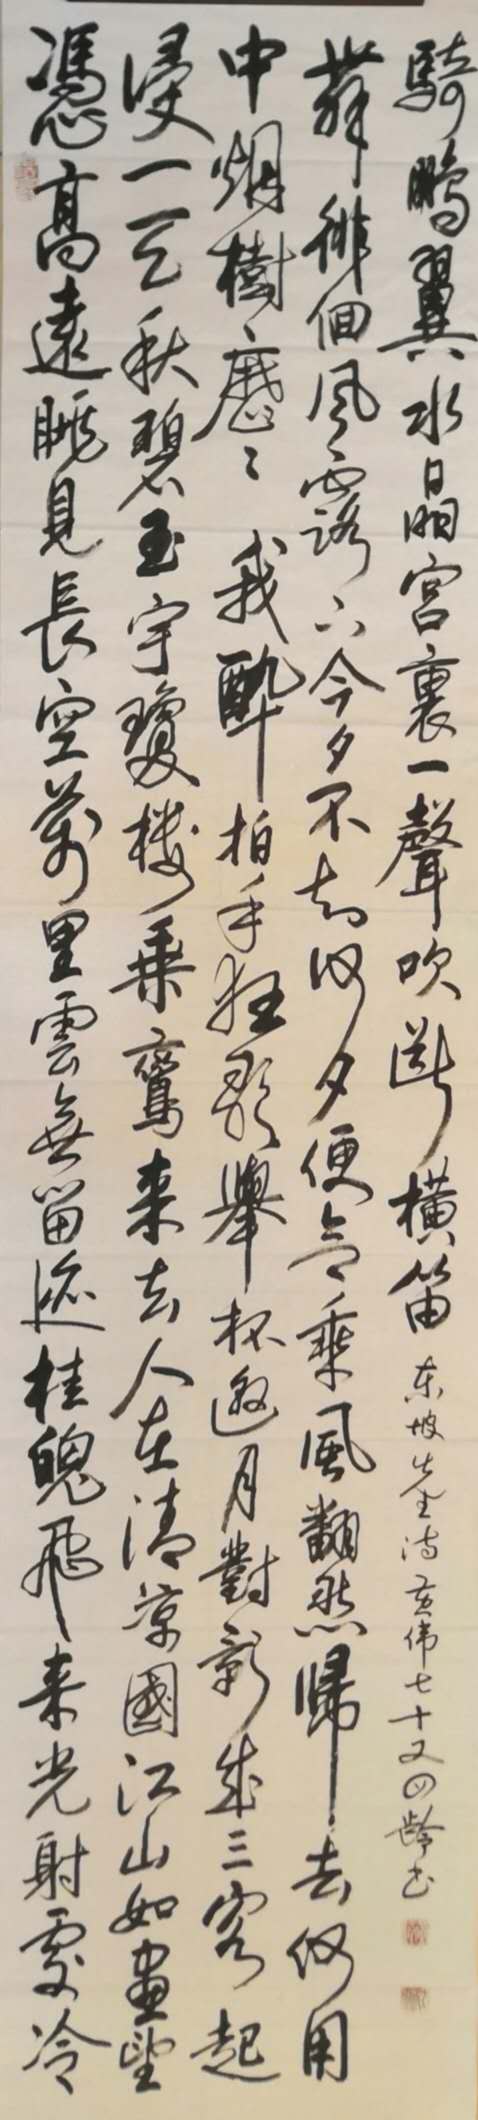 憑高遠眺見長空萬里雲無留迹桂魄飛来光射處冷
浸一天秋碧玉宇瓊楼乘鸞来去人在清凉國江山如畫望
中烟樹歷〻我醉拍手狂歌舉杯邀月對影成三客起
舞徘佪風露下今夕不知何夕便欲乘風翻然歸去何用
騎鵬翼水晶宮裏一聲吹斷橫笛 东坡先生诗 黄伟七十又四齡书